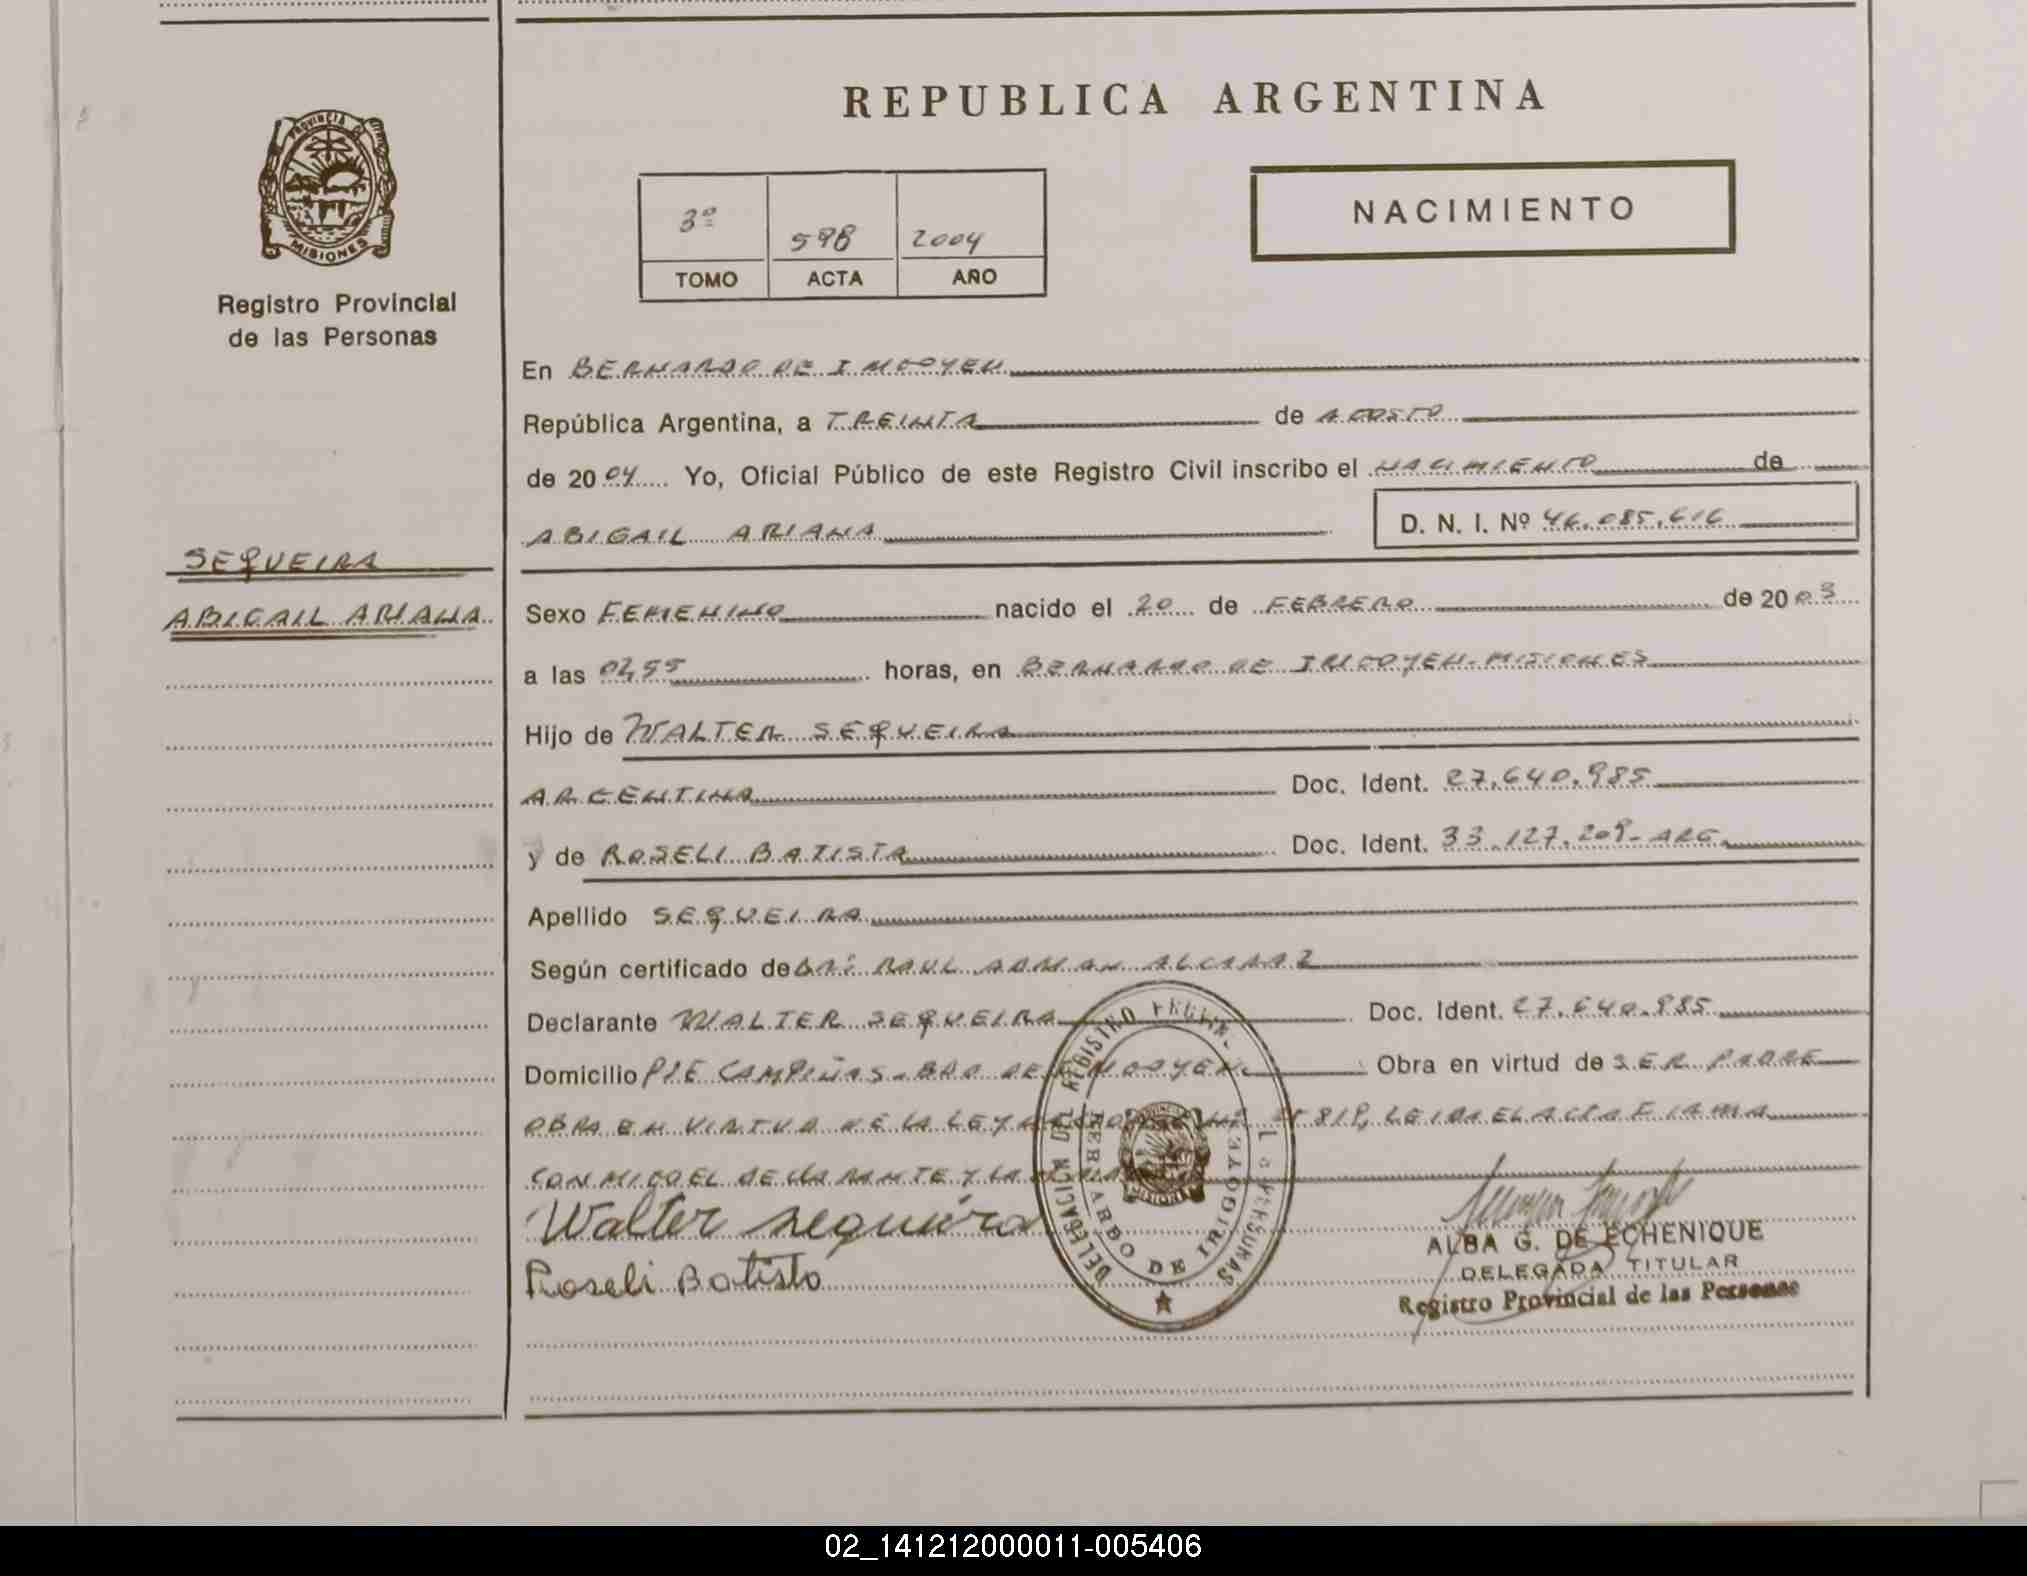 REPUBLICA ARGENTINA
PROVINCIA DE MISIONES
Registro Provincial
de las Personas
3º 598 2004
TOMO ACTA AÑO
NACIMIENTO
En BERNARDO DE IRIGOYEN
República Argentina, a TREINTA de AGOSTO
de 2004 Yo, Oficial Público de este Registro Civil inscribo el NACIMIENTO de
ABIGAIL ARIANA D. N. I. Nº 46.085.616
SEQUEIRA
ABIGAIL ARIANA
Sexo FEMENINO nacido el 20 de FEBRERO de 2003
a las horas, en BERNARDO DE IRIGOYEN-MISIONES
Hijo de WALTER SEQUEIRA
ARGENTINA Doc. Ident. 27.640.985
y de ROSELI BATISTA Doc. Ident. 33.127.209-ARG
Apellido SEQUEIRA
Según certificado de RAUL ADRIAN ALCARAZ
Declarante WALTER SEQUEIRA Doc. Ident. 27.640.985
Domicilio PJE CAMPIÑAS-BDO DE IRIGOYEN Obra en virtud de SER PADRE
OBRA EN VIRTUD DE LA LEY LEIDA EL ACTA FIRMA
CONMIGO EL DECLARANTE Y LA
Walter sequeira
Roseli Batista
DELEGACION DEL REGISTRO
BERNARDO DE IRIGOYEN
MISIONES
ALBA G. DE ECHENIQUE
DELEGADA TITULAR
Registro Provincial de las Personas
02_141212000011-005406